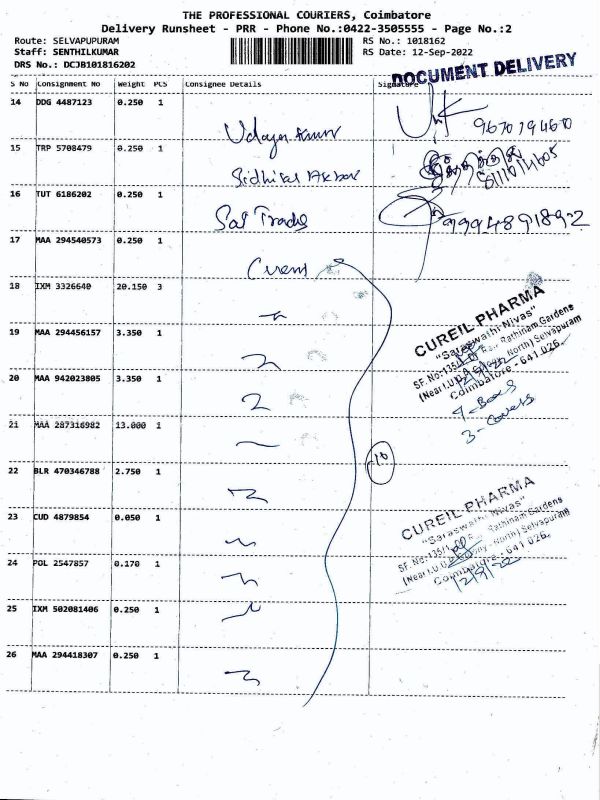 THE PROFESSIONAL COURIERS, Coimbatore
Delivery Runsheet - PRR - Phone No.:0422-3505555 - Page No.:2
Route: SELVAPUPURAM RS No.: 1018162
Staff: SENTHILKUMAR RS Date: 12-Sep-2022
DRS No.: DCJB101816202
DOCUMENT DELIVERY
S No Consignment No Weight PCS Consignee Details Signature
14 DDG 4487123 0.250 1
Udaya Kumar 9670794670
15 TRP 5708479 0.250 1
Sidhikal Akbar
16 TUT 6186202 0.250 1
Sai Trade 9994891892
17 MAA 294540573 0.250 1
Cureil
18 IXM 3326640 20.150 3
CUREIL PHARMA
"Saraswathi Nivas"
SF.No:135/1, Rathinam Gardens
(Near L.U.G. North) Selvapuram
Coimbatore - 641 026.
19 MAA 294456157 3.350 1
20 MAA 942023805 3.350 1
7-Boxes
3-Covers
21 MAA 287316982 13.000 1
10
22 BLR 470346788 2.750 1
CUREIL PHARMA
"Saraswathi Nivas"
SF.No:135/1, Rathinam Gardens
(Near L.U.G. North) Selvapuram
Coimbatore - 641 026.
12/9/22
23 CUD 4879854 0.050 1
24 POL 2547857 0.170 1
25 IXM 502081406 0.250 1
26 MAA 294418307 0.250 1